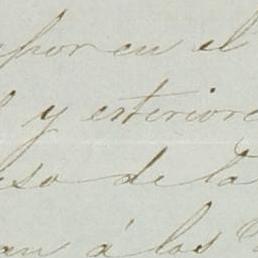 por en el
y exteriore
eso de la
an á los